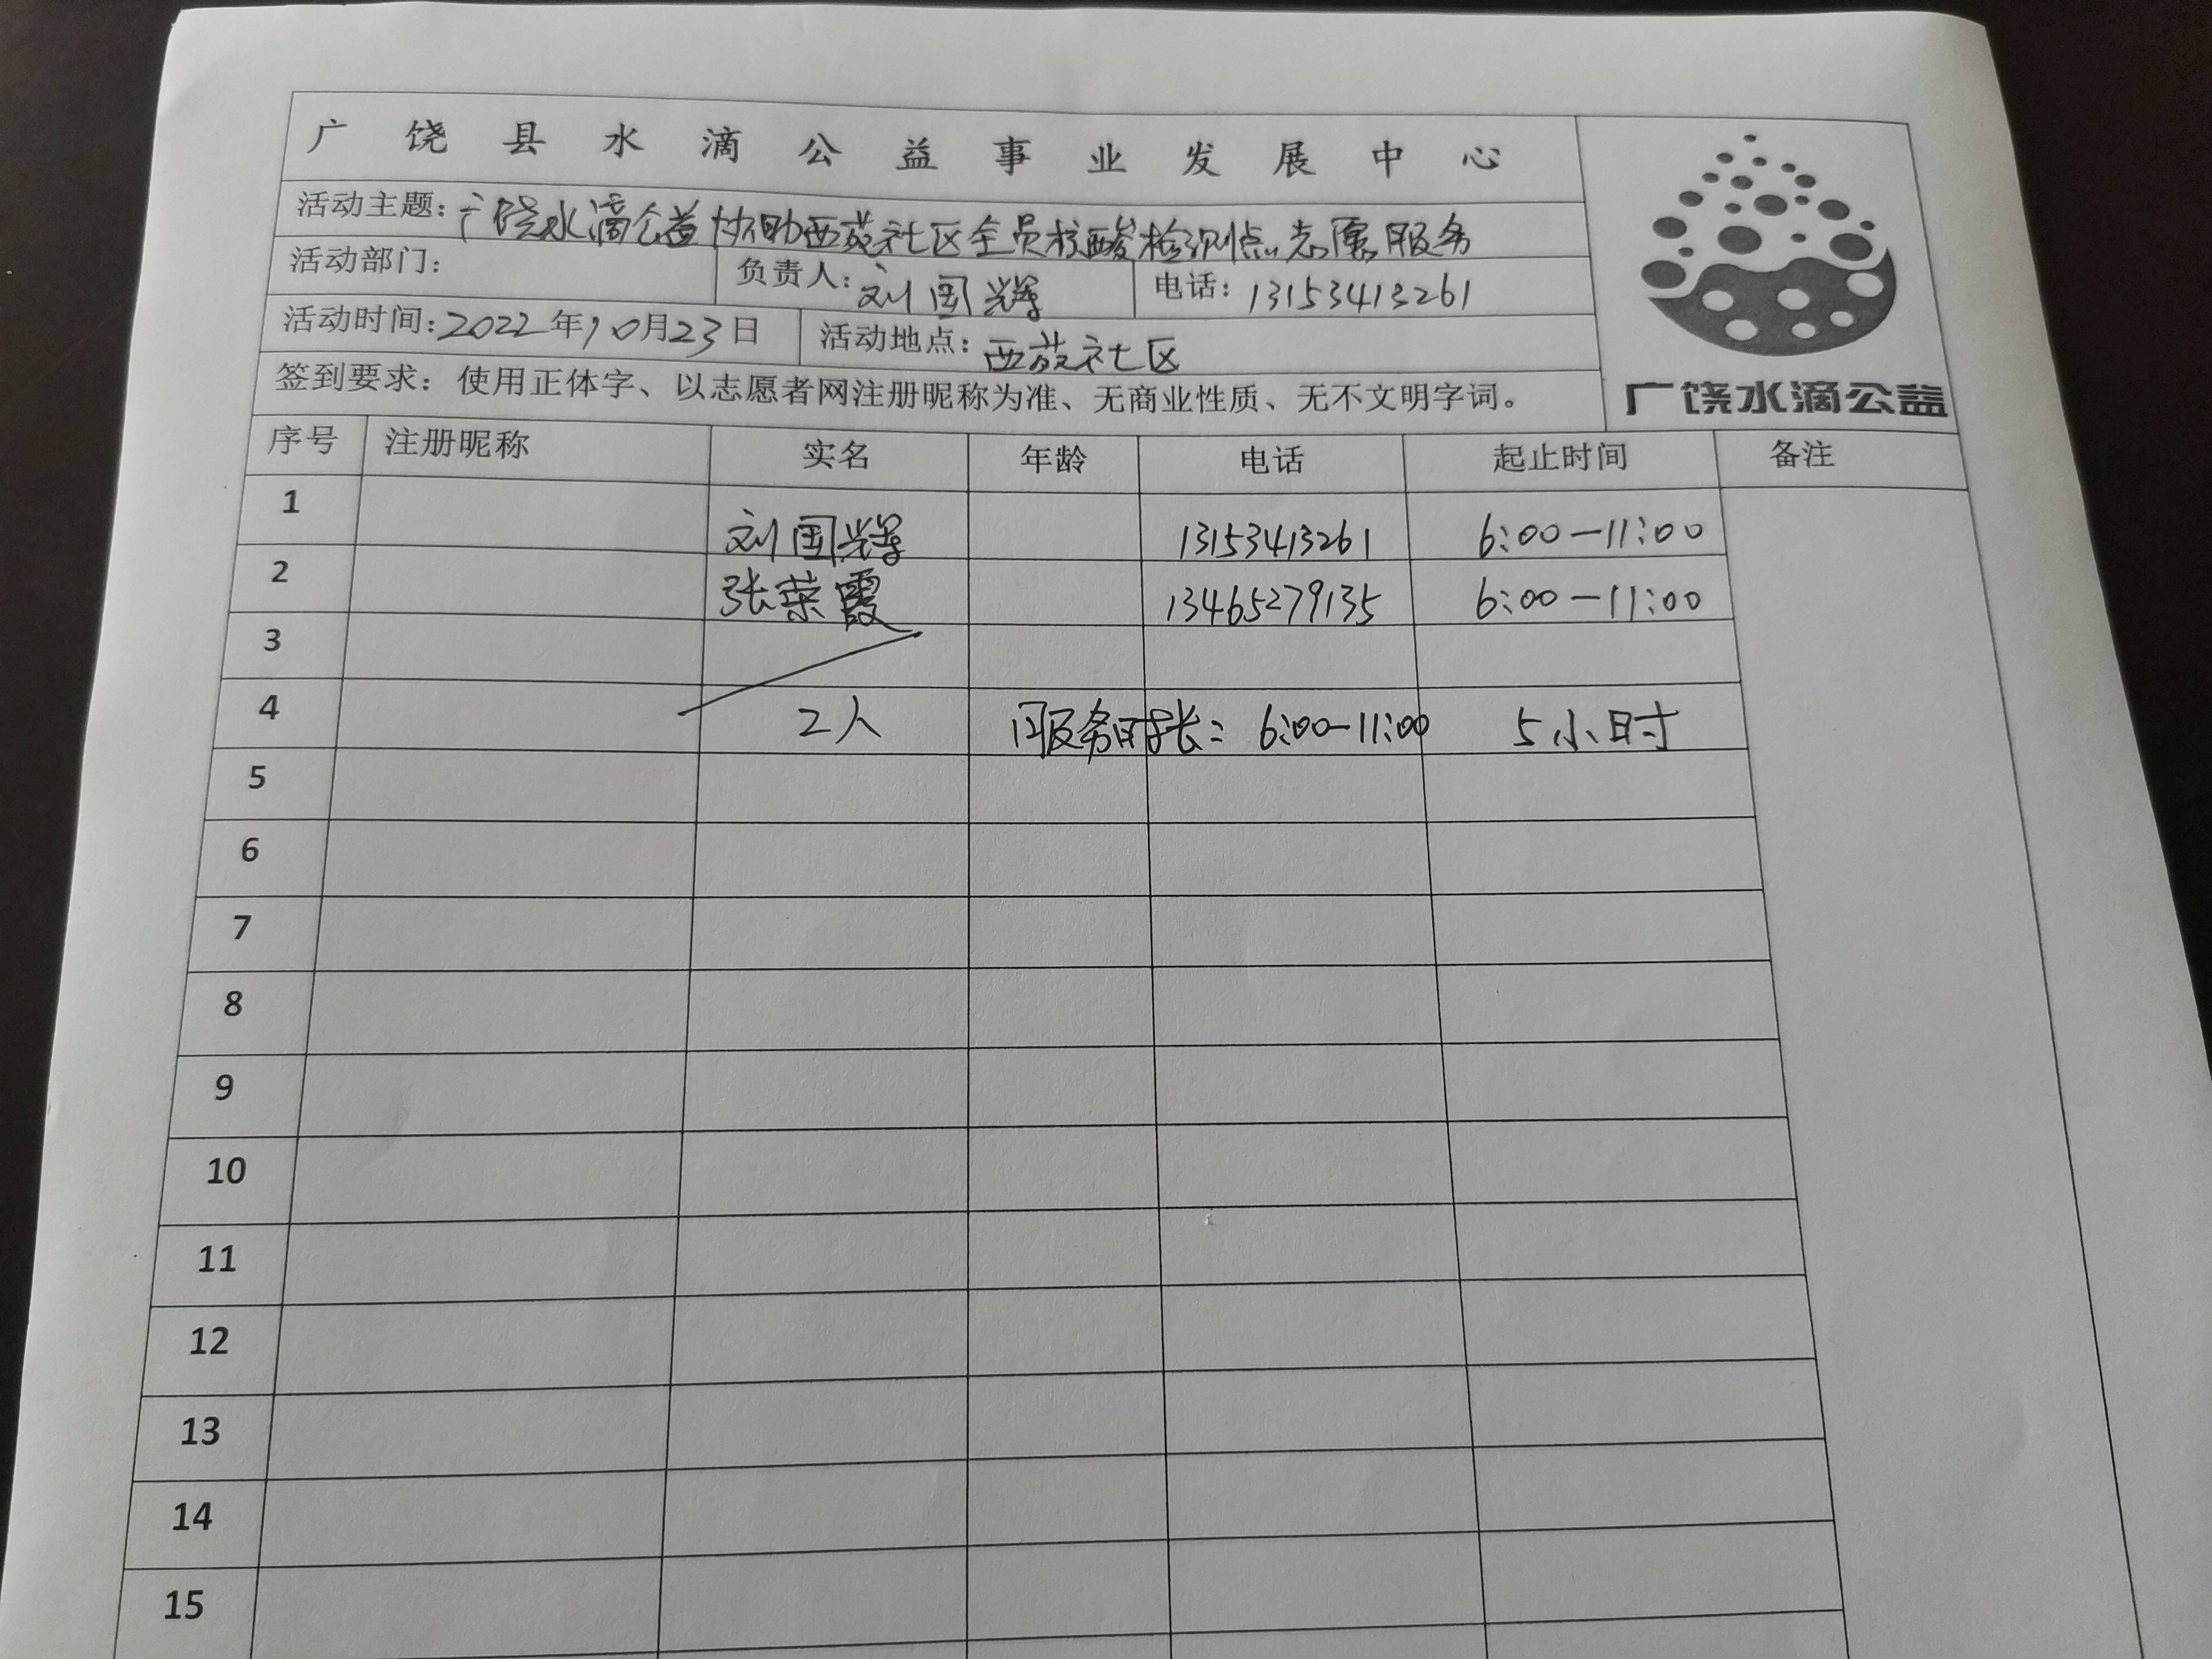 广饶县水滴公益事业发展中心
活动主题：广饶水滴公益协助西苑社区全员核酸检测点志愿服务
活动部门： 负责人：刘国辉 电话：13153413261
活动时间：2022年10月23日 活动地点：西苑社区
签到要求：使用正体字、以志愿者网注册昵称为准、无商业性质、无不文明字词。
广饶水滴公益
序号 注册昵称 实名 年龄 电话 起止时间 备注
1 刘国辉 13153413261 6:00-11:00
2 张荣霞 13465279135 6:00-11:00
3
4 2人 服务时长：6:00-11:00 5小时
5
6
7
8
9
10
11
12
13
14
15